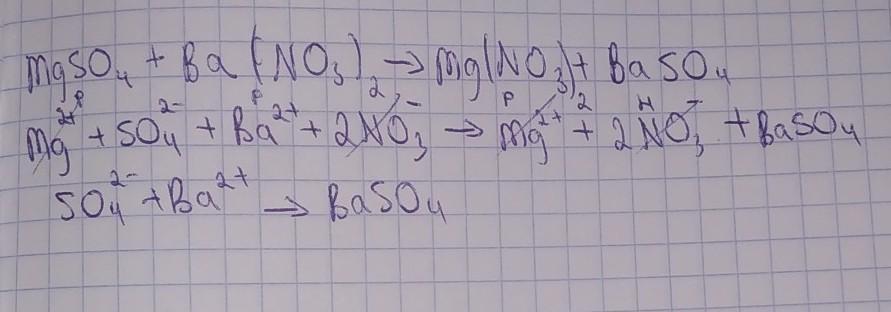 MgSO₄ + Ba(NO₃)₂ → Mg(NO₃)₂ + BaSO₄
р р р н
Mg²⁺ + SO₄²⁻ + Ba²⁺ + 2NO₃⁻ → Mg²⁺ + 2NO₃⁻ + BaSO₄
SO₄²⁻ + Ba²⁺ → BaSO₄